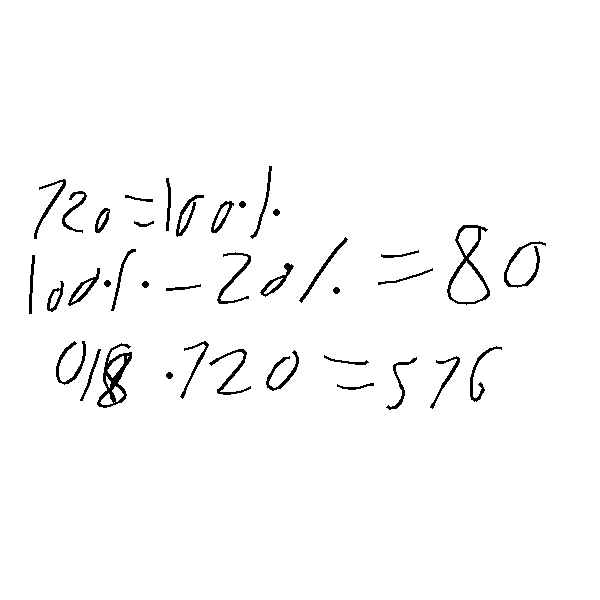 720=100%
100%-20%=80
0,8·720=576